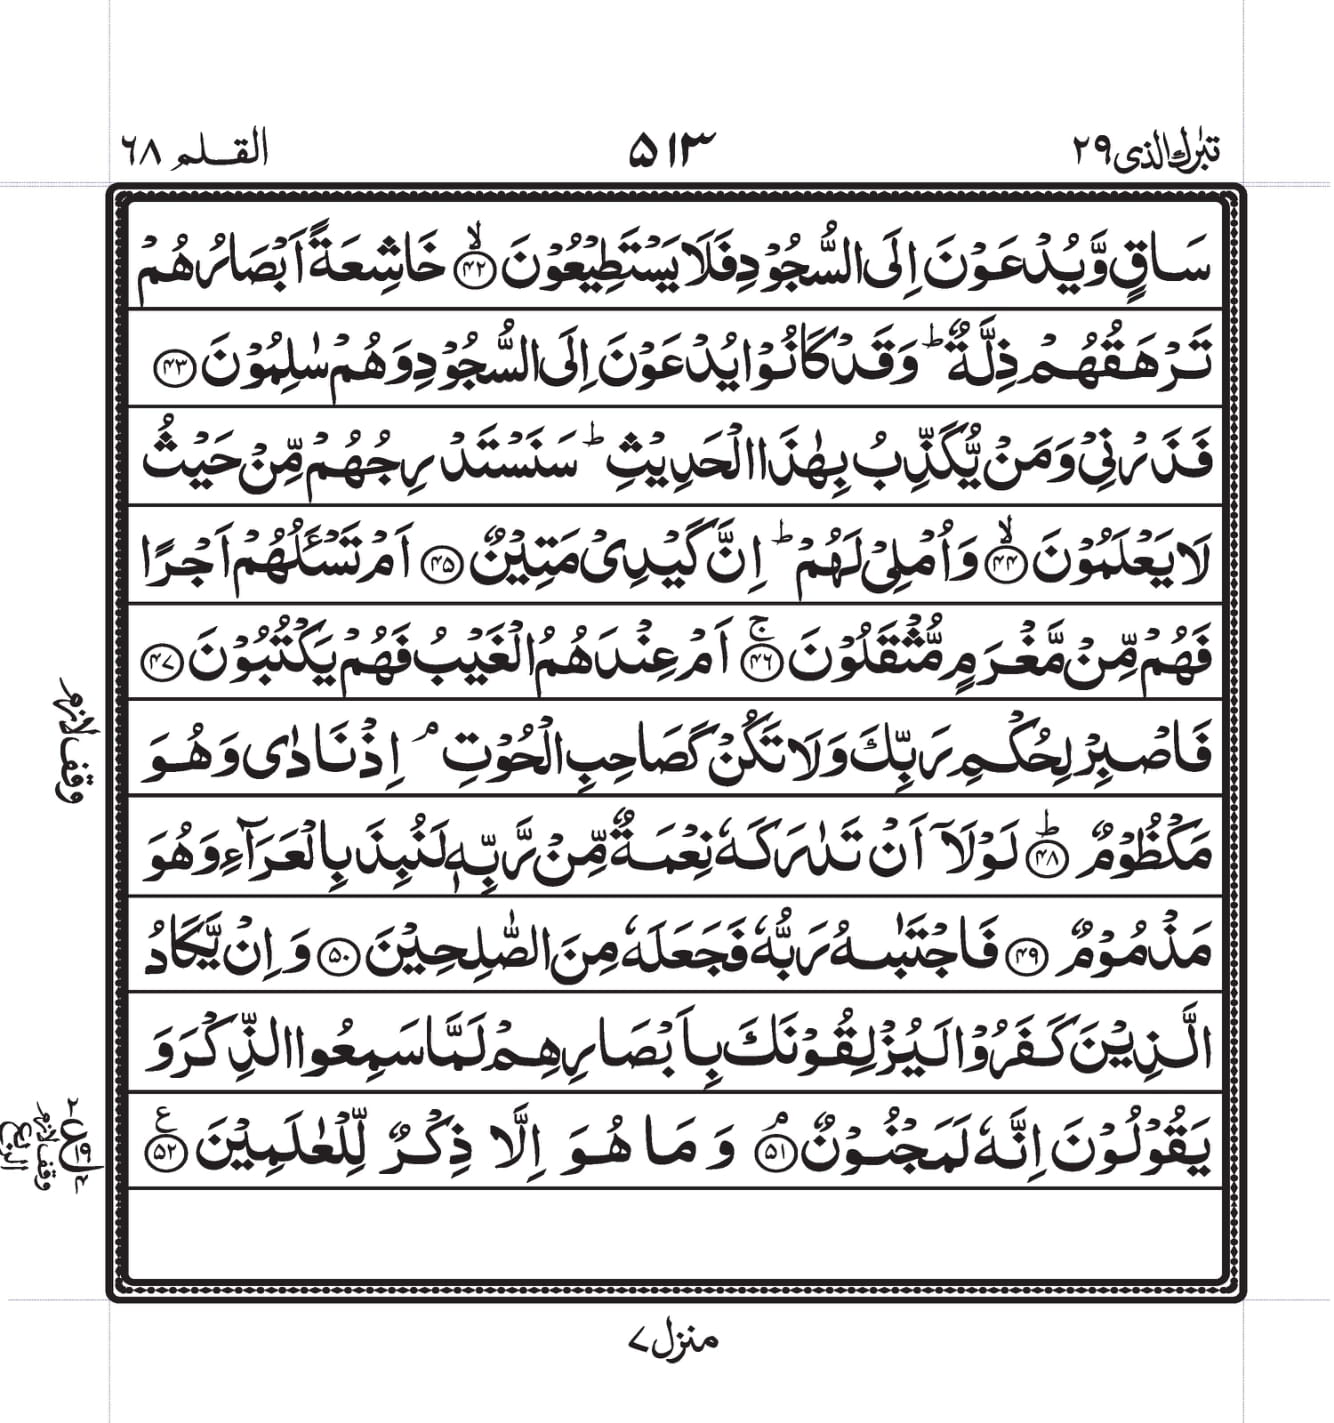 تبٰرك الذی ٢٩
٥١٣
القـلـم ٦٨
سَاقٍ وَّيُدْعَوْنَ اِلَى السُّجُوْدِ فَلَا يَسْتَطِيْعُوْنَ ۙ﴿۴۲﴾ خَاشِعَةً اَبْصَارُهُمْ
تَرْهَقُهُمْ ذِلَّةٌ ؕ وَقَدْ كَانُوْا يُدْعَوْنَ اِلَى السُّجُوْدِ وَهُمْ سٰلِمُوْنَ ﴿۴۳﴾
فَذَرْنِيْ وَمَنْ يُّكَذِّبُ بِهٰذَا الْحَدِيْثِ ؕ سَنَسْتَدْرِجُهُمْ مِّنْ حَيْثُ
لَا يَعْلَمُوْنَ ۙ﴿۴۴﴾ وَاُمْلِيْ لَهُمْ ؕ اِنَّ كَيْدِىْ مَتِيْنٌ ﴿۴۵﴾ اَمْ تَسْـَٔلُهُمْ اَجْرًا
فَهُمْ مِّنْ مَّغْرَمٍ مُّثْقَلُوْنَ ۚ﴿۴۶﴾ اَمْ عِنْدَهُمُ الْغَيْبُ فَهُمْ يَكْتُبُوْنَ ﴿۴۷﴾
فَاصْبِرْ لِحُكْمِ رَبِّكَ وَلَا تَكُنْ كَصَاحِبِ الْحُوْتِ ۘ اِذْ نَادٰى وَهُوَ
مَكْظُوْمٌ ؕ﴿۴۸﴾ لَوْلَاۤ اَنْ تَدٰرَكَهٗ نِعْمَةٌ مِّنْ رَّبِّهٖ لَنُبِذَ بِالْعَرَآءِ وَهُوَ
مَذْمُوْمٌ ﴿۴۹﴾ فَاجْتَبٰىهُ رَبُّهٗ فَجَعَلَهٗ مِنَ الصّٰلِحِيْنَ ﴿۵۰﴾ وَاِنْ يَّكَادُ
الَّذِيْنَ كَفَرُوْا لَيُزْلِقُوْنَكَ بِاَبْصَارِهِمْ لَمَّا سَمِعُوا الذِّكْرَ وَ
يَقُوْلُوْنَ اِنَّهٗ لَمَجْنُوْنٌ ۘ﴿۵۱﴾ وَمَا هُوَ اِلَّا ذِكْرٌ لِّلْعٰلَمِيْنَ ﴿۵۲﴾ ع
وقف لازم
وقف لازم
منزل ٧